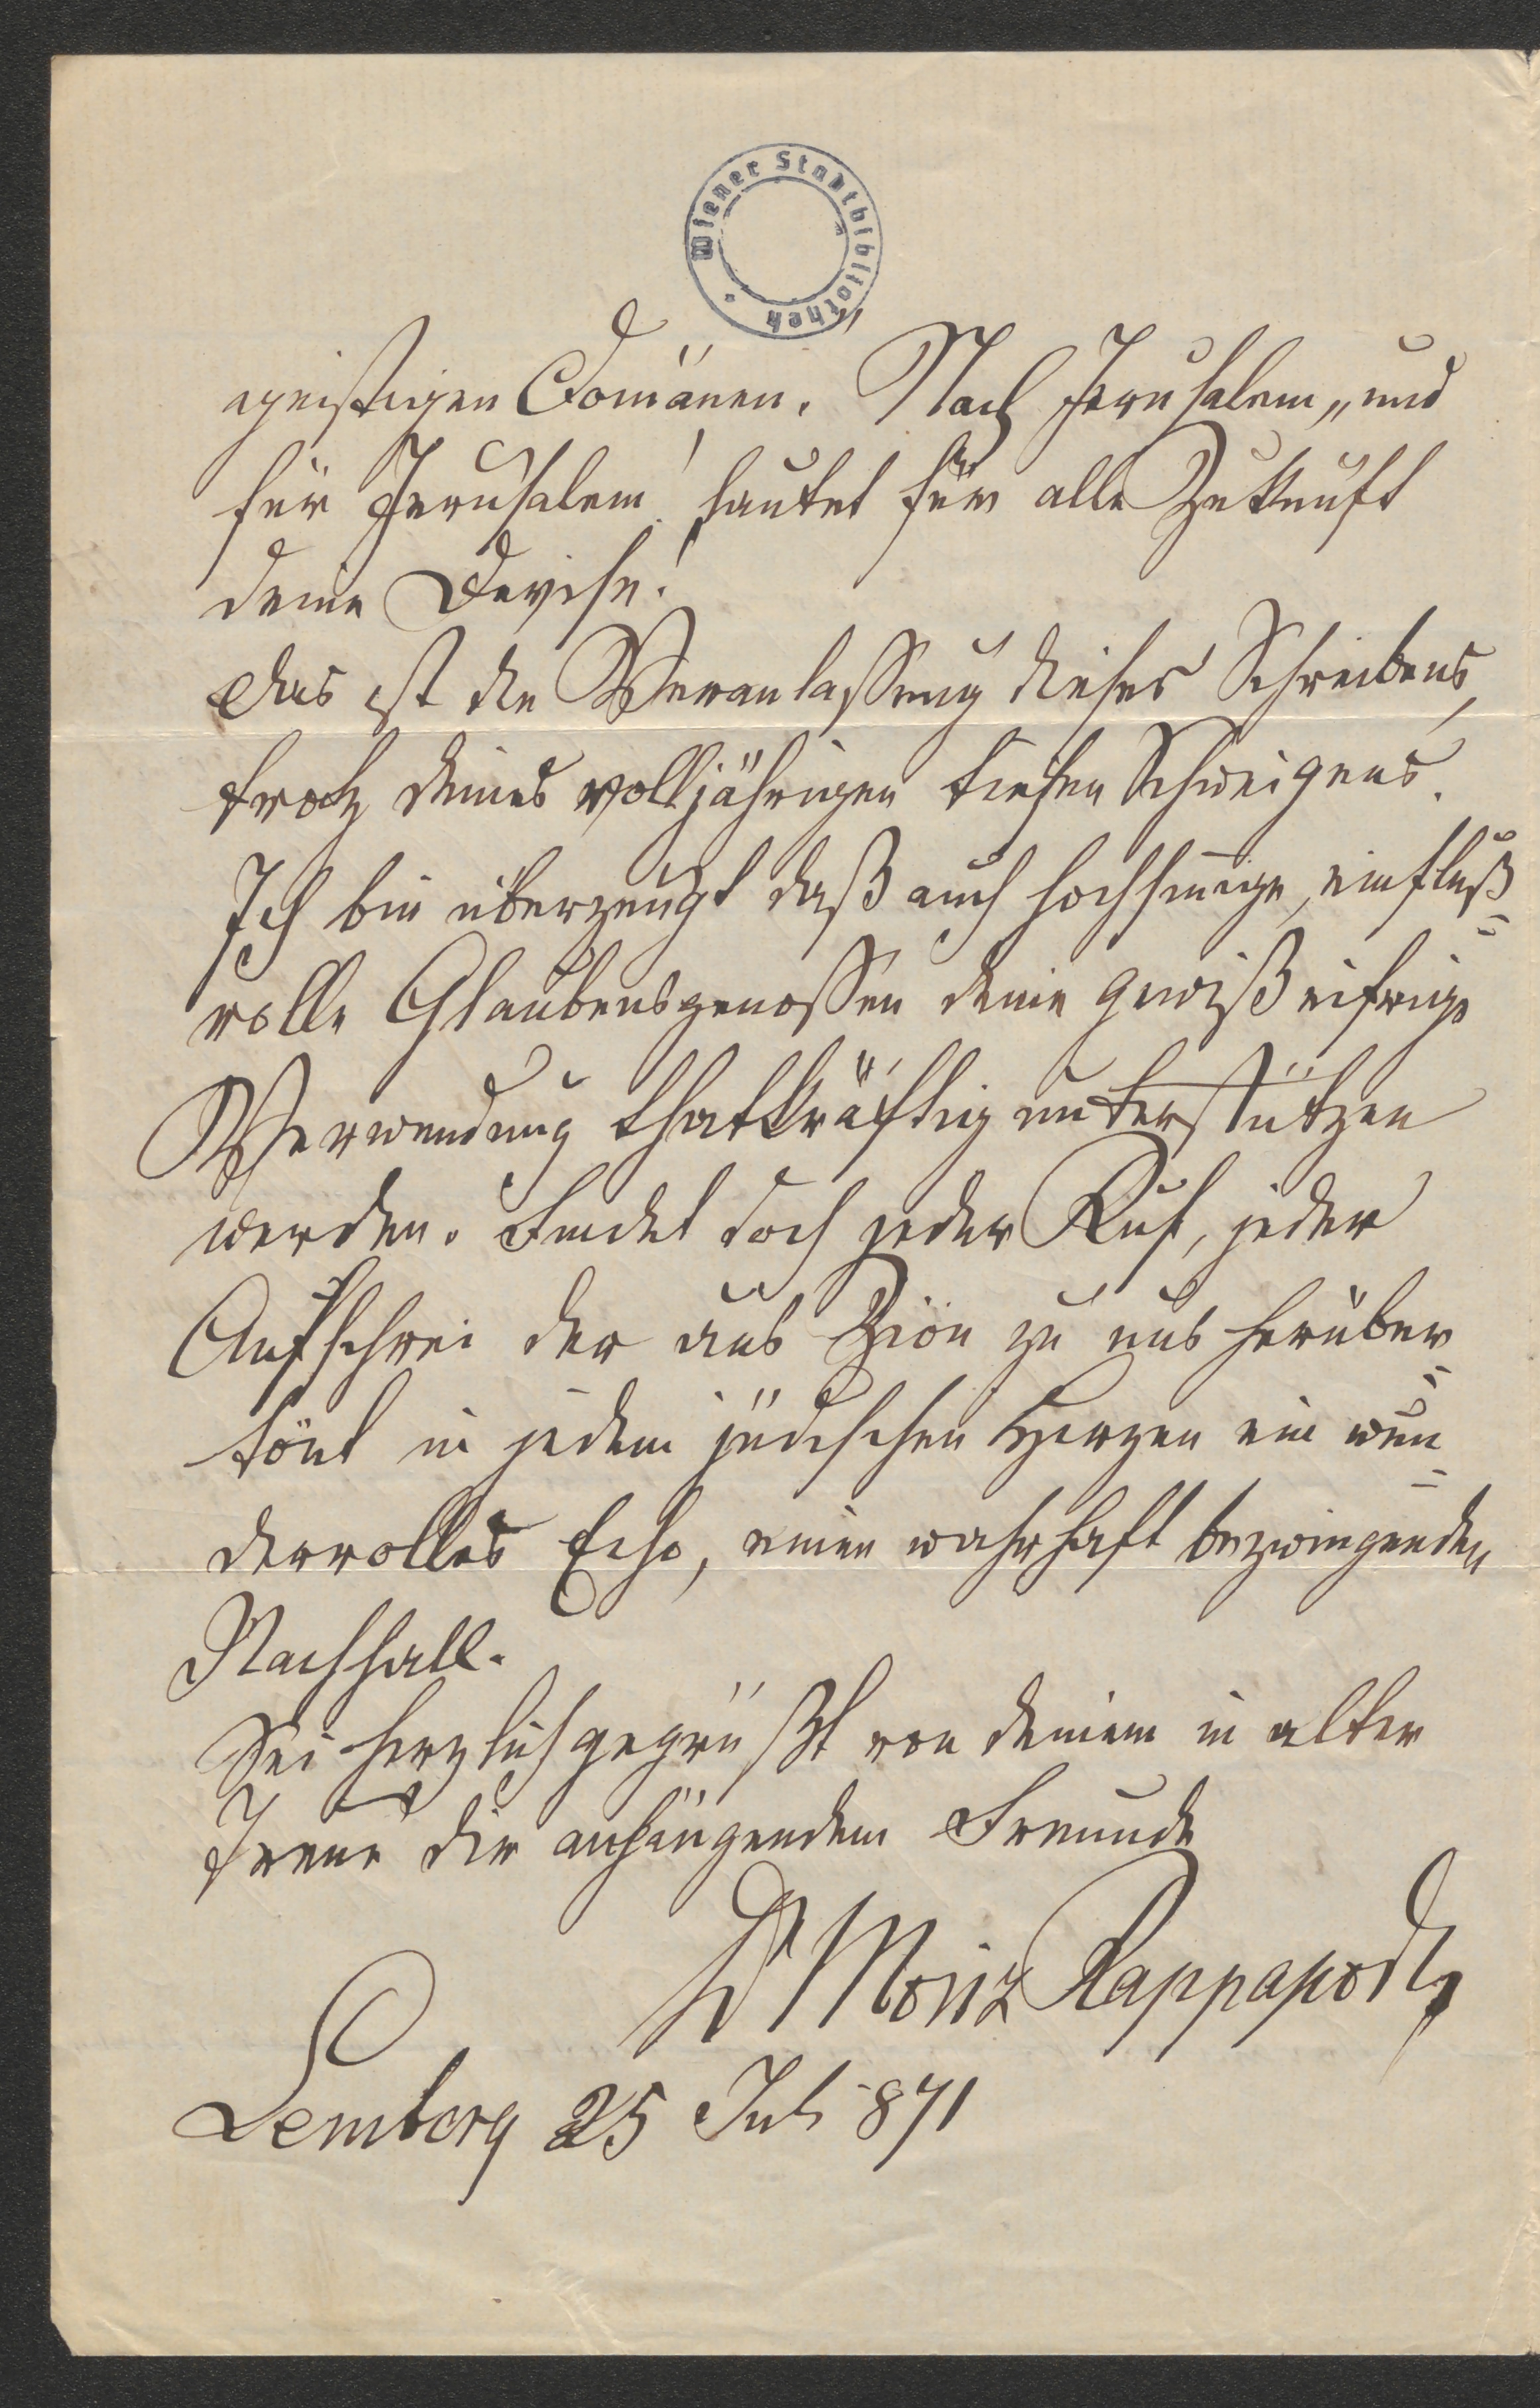 Wiener Stadtbibliothek
geistigen Domänen. "Nach Jerusalem„ und
für Jerusalem! lautet für alle Zukunft
deine Devise!
Das ist die Veranlaßung dieses Schreibens,
trotz deines volljährigen tiefen Schweigens.
Ich bin überzeugt daß auch hochsinnige, einfluß=
volle Glaubensgenoßen deine gewiß eifrige
Verwendung thatkräftig unterstützen
werden. Findet doch jeder Ruf, jeder
Aufschrei der aus Zion zu uns herüber=
tönt in jedem jüdischen Herzen ein wun=
dervolles Echo, einen wahrhaft bezwingenden
Nachhall.
Sei herzlich gegrüßt von deinem in alter
Treue dir anhängendem Freunde
Dr Moriz Rappaport
Lemberg 25 Juli 871